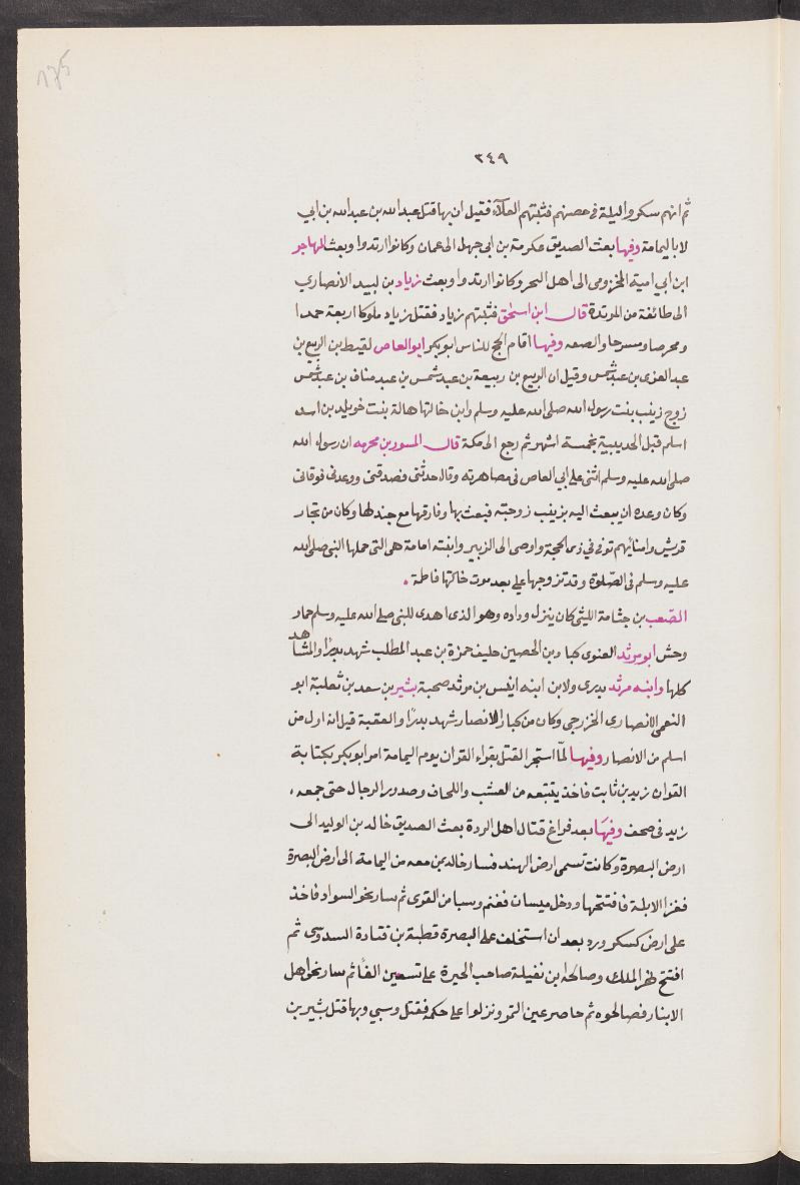 175
٣٤٩
ثم انهم سكروا ليلة فى حصنهم فثبتهم العلآء فقيل ان بها قتل عبد الله بن عبد الله بن ابي
لا باليمامة وفيها بعث الصديق عكرمة بن ابى جهل الى عمان وكانوا ارتدوا وبعث المهاجر
ابن ابي امية المخزومى الى اهل البحر وكانوا ارتدوا وبعث زياد بن لبيد الانصاري
الى طائفة من المرتدة قال ابن اسحٰق فثبتهم زياد فقتل زياد ملوكا اربعة حمدا
ومحرصا ومسرحا والصعه وفيها اقام الحج للناس ابو بكر ابو العاص لقيط بن الربيع بن
عبد العزى بن عبد شمس وقيل ان الربيع بن ربيعة بن عبد شمس بن عبد مناف بن عبد شمس
زوج زينب بنت رسول الله صلى الله عليه وسلم وابن خالتها هالة بنت خويلد بن اسد
اسلم قبل الحديبية بخمسة اشهر ثم رجع الى مكة قال المسور بن محرمه ان رسول الله
صلى الله عليه وسلم اثنى على ابي العاص فى مصاهرته وقال حدثنى فصدقنى ووعدنى فوفانى
وكان وعده ان يبعث اليه بزينب زوجته فبعث بها وفارقها مع حبه لها وكان من تجار
قريش وامنائهم توفى في ذى الحجة واوصى الى الزبير وابنته امامة هى التى حملها النبى صلى الله
عليه وسلم فى الصلوة وقد تزوجها على بعد موت خالتها فاطمة.
الصعب بن جثامة الليثى كان ينزل وداه وهو الذى اهدى للنبى صلى الله عليه وسلم حمار
وحش ابو مرثد الغنوى كباد بن الحصين حليف حمزة بن عبد المطلب شهد بدرا والمشاهد
كلها وابنه مرثد بدرى ولابن ابنه انيس بن مرثد صحبة بشير بن سعد بن ثعلبة ابو
النعمى الانصارى الخزرجى وكان من كبار الانصار شهد بدرًا والعقبة قيل انه اول من
اسلم من الانصار وفيها لمّا استحر القتل بقراء القران يوم اليمامة امر ابو بكر بكتابة
القران زيد بن ثابت فاخذ يتتبعه من العشب واللحاف وصدور الرجال حتى جمعه،
زيد فى صحف وفيها بعد فراغ قتال اهل الردة بعث الصديق خالد بن الوليد الى
ارض البصرة وكانت تسمى ارض الهند فسار خالد بمن معه من اليمامة الى ارض البصرة
فغزا الابلة فافتتحها ودخل ميسان فغنم وسبا من القرى ثم سار نحو السواد فاخذ
على ارض كسكر ورد بعد ان استخلف على البصرة قطبة بن قتادة السدوسى ثم
افتتح نهر الملك وصالحه ابن نفيلة صاحب الحيرة على تسعين الفًا ثم سار نحو اهل
الانبار فصالحوه ثم حاصر عين التمر ونزلوا على حكمه فقتل وسبى وبها قتل بشير بن